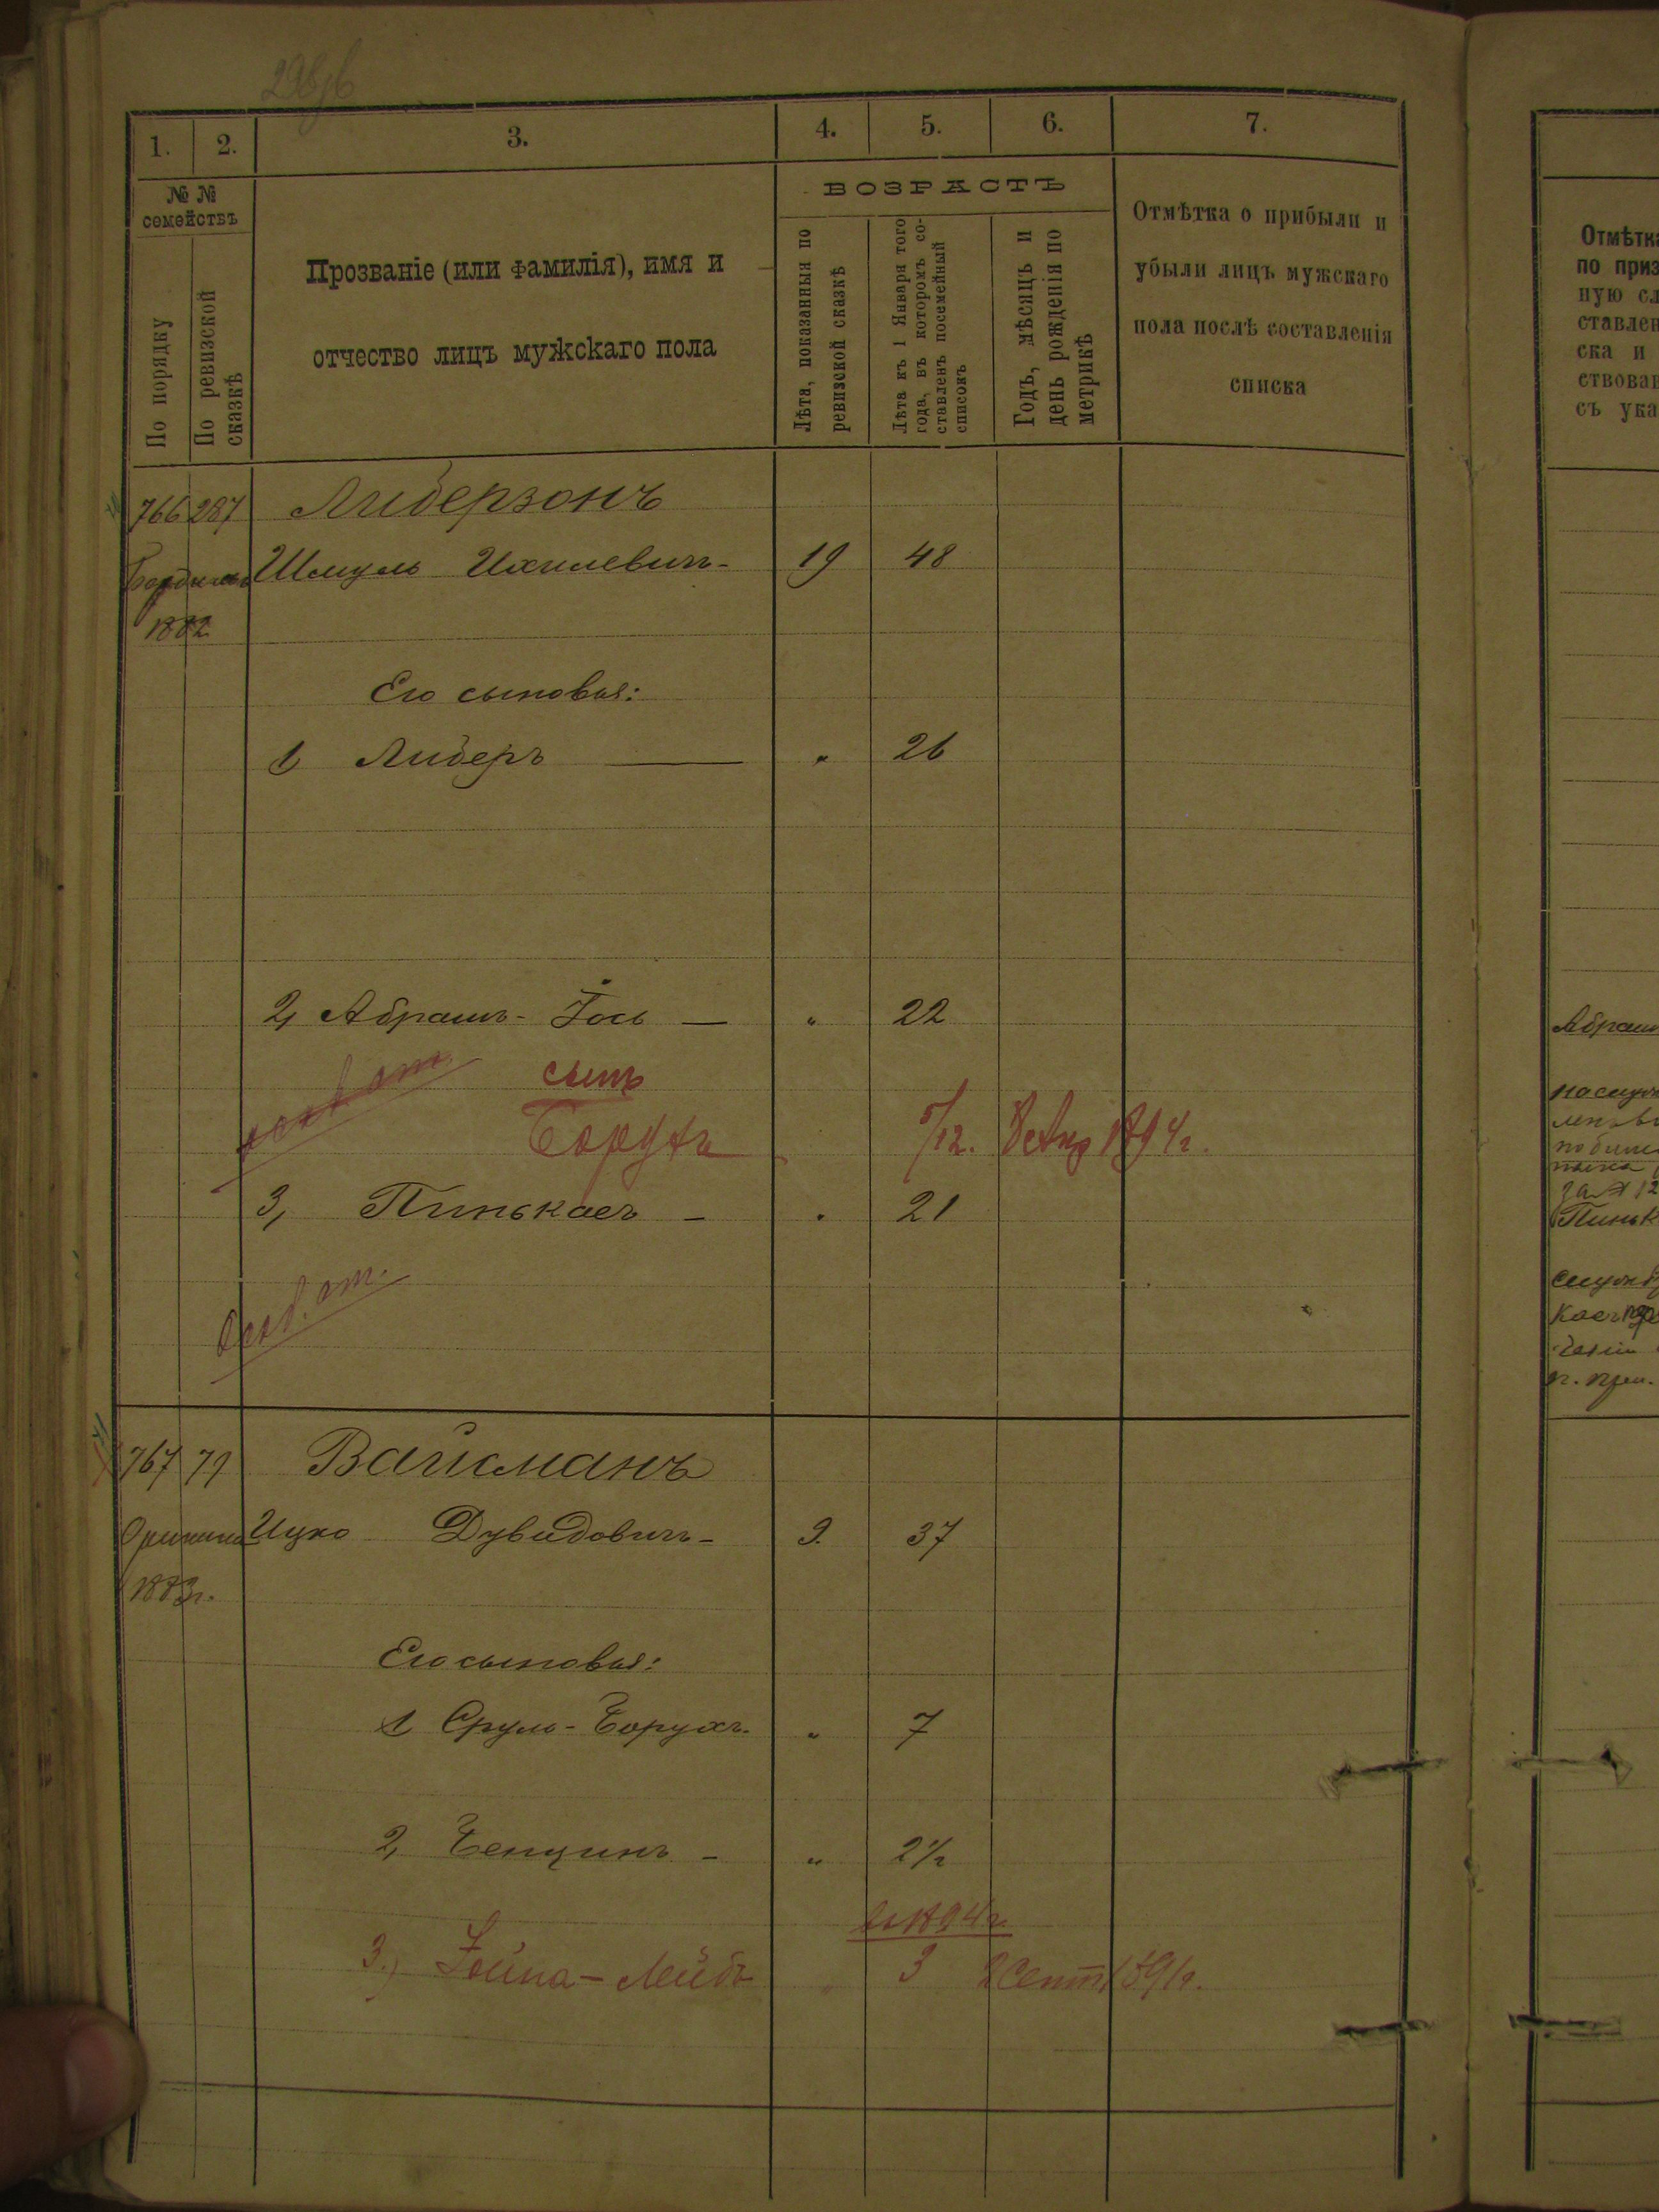 1. 2. 3. 4. 5. 6. 7.
№ №
семействъ
По порядку
По ревизской
сказкѣ
Прозваніе (или фамилія), имя и
отчество лицъ мужскаго пола
ВОЗРАСТЪ
Лѣта, показанныя по
ревизской сказкѣ
Лѣта къ 1 Января того
года, въ которомъ со-
ставленъ посемейный
списокъ
Годъ, мѣсяцъ и
день рожденія по
метрикѣ
Отмѣтка о прибыли и
убыли лицъ мужскаго
пола послѣ составленія
списка
766 287 Либерзонъ
Шмуль Ихилевичъ- 19 48
1882
Его сыновья:
1 Либеръ — " 26
2, Абрамъ-Іось — " 22
сынъ
Борухъ 5/12. 1894г.
3, Пинькасъ — " 21
от.
767 79 Вайсманъ
Ицко Дувидовичъ- 9. 37
1883г.
Его сыновья:
1 Сруль-Борухъ. " 7
2, Бенцинъ - " 2½
1894г.
3.) Лейбъ 3 2 Сент. 1891г.
Отмѣтка
по приз
ную сл
ставлен
ска и
ствован
съ ука
Абрам
Пиньк